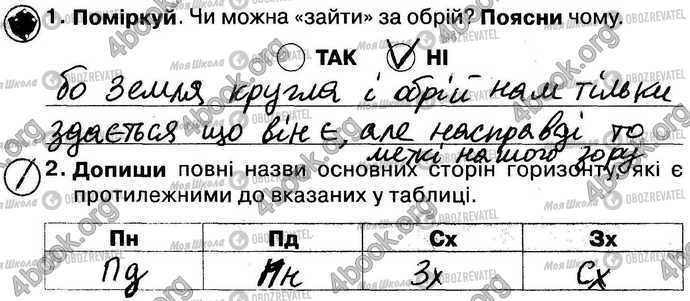 1. Поміркуй. Чи можна «зайти» за обрій? Поясни чому.
ТАК НІ
бо Земля кругла і обрій нам тільки
здається що він є, але насправді то
меткі нашого зору
2. Допиши повні назви основних сторін горизонту, які є
протилежними до вказаних у таблиці.
Пн Пд Сх Зх
Пд Пн Зх Сх
Моя Школа OBOZREVATEL
4book.org